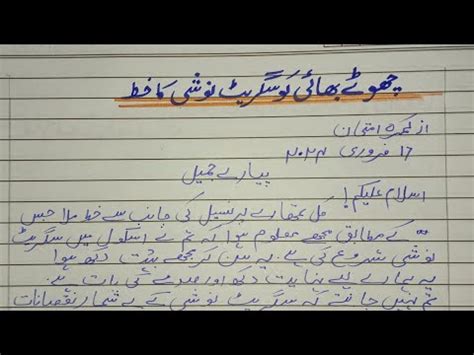 چھوٹے بھائی کو سگریٹ نوشی کا خط
از کمرہ امتحان
17 فروری ۲۰۲۴
پیارے جمیل
اسلام علیکم!
کل تمھارے پرنسپل کی جانب سے خط ملا جس
کے مطابق مجھے معلوم ہوا کہ تم نے اسکول میں سگریٹ
نوشی شروع کی ہے۔ یہ سن کر مجھے بہت دکھ ہوا
یہ ہمارے لیے نہایت دکھ اور صدمے کی بات ہے۔
تم نہیں جانتے کہ سگریٹ نوشی کے بے شمار نقصانات